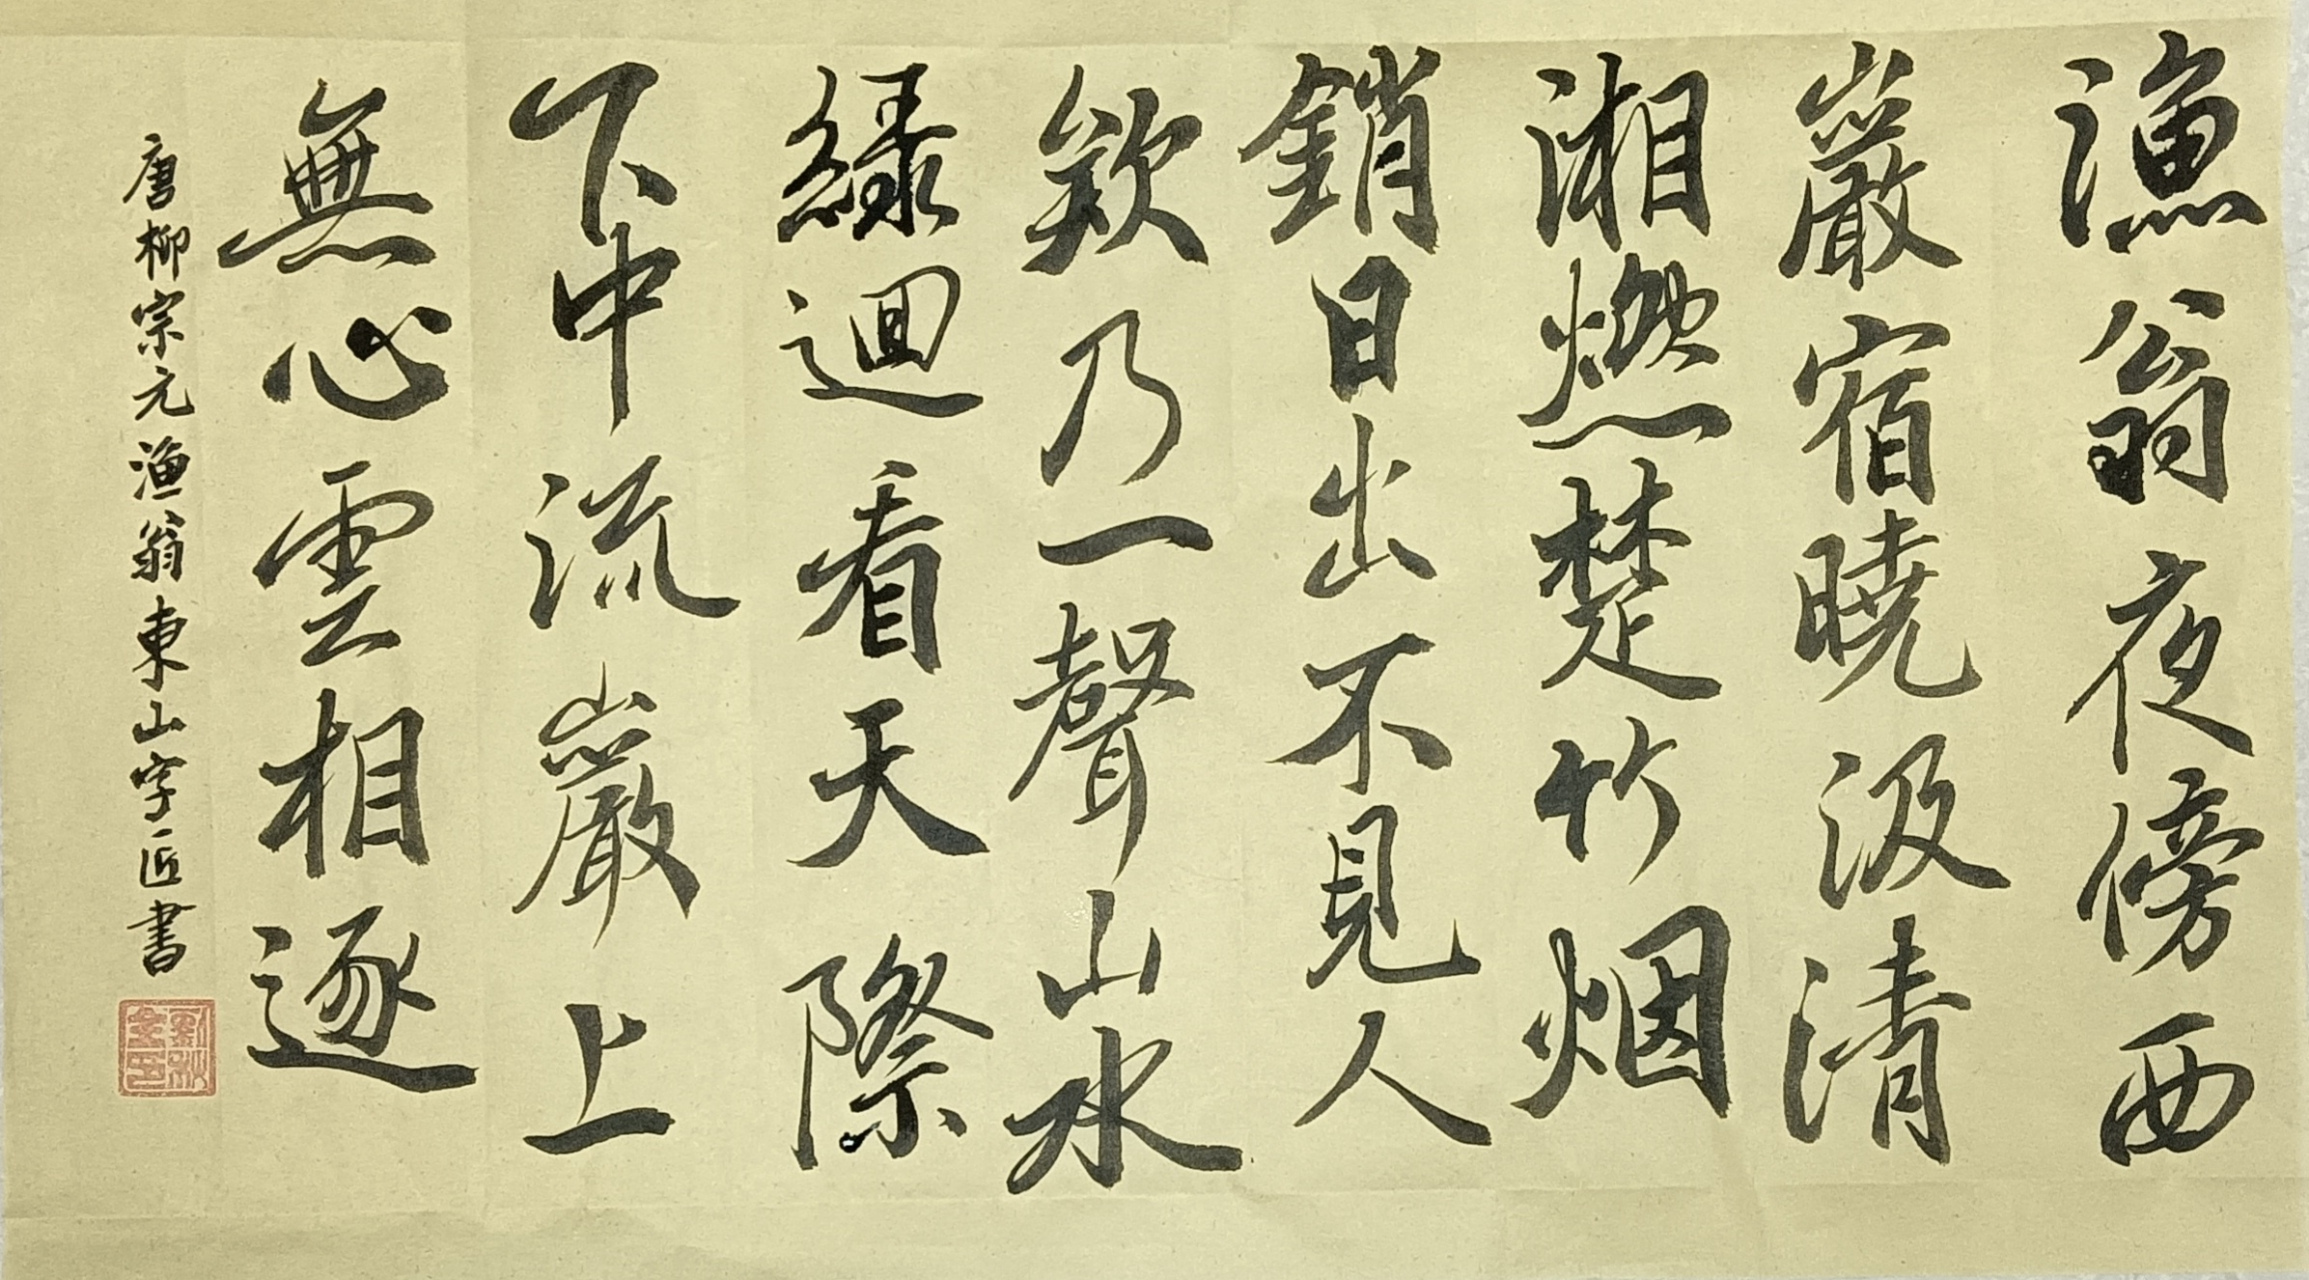 漁翁夜傍西
巖宿曉汲清
湘燃楚竹烟
銷日出不見人
欸乃一聲山水
綠迴看天際
下中流巖上
無心雲相逐
唐柳宗元漁翁東山字匠書